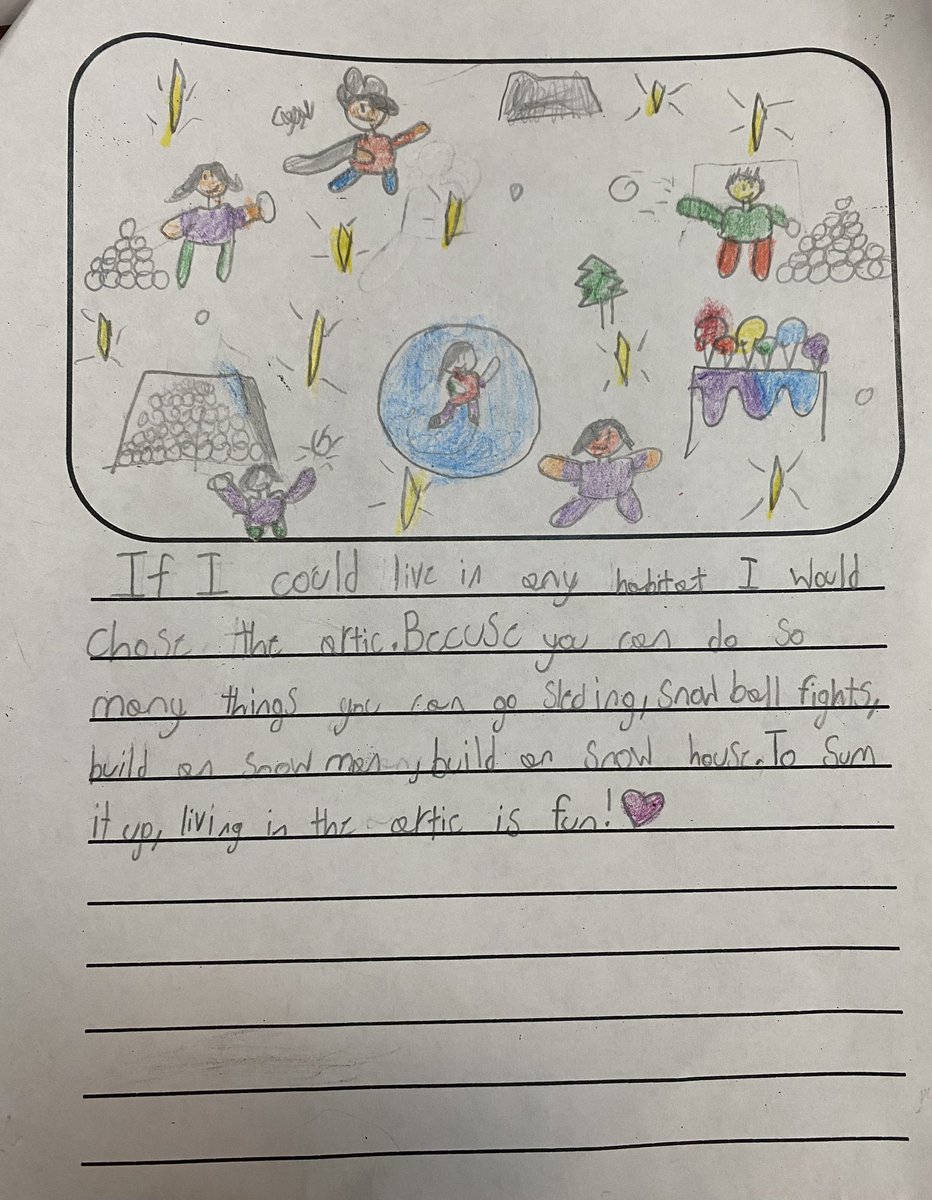 If I could live in any habitat I would
chose the artic. Becuse you can do so
many things you can go sleding, snow ball fights,
build an snow man, build an snow house. To sum
it up, living in the artic is fun!